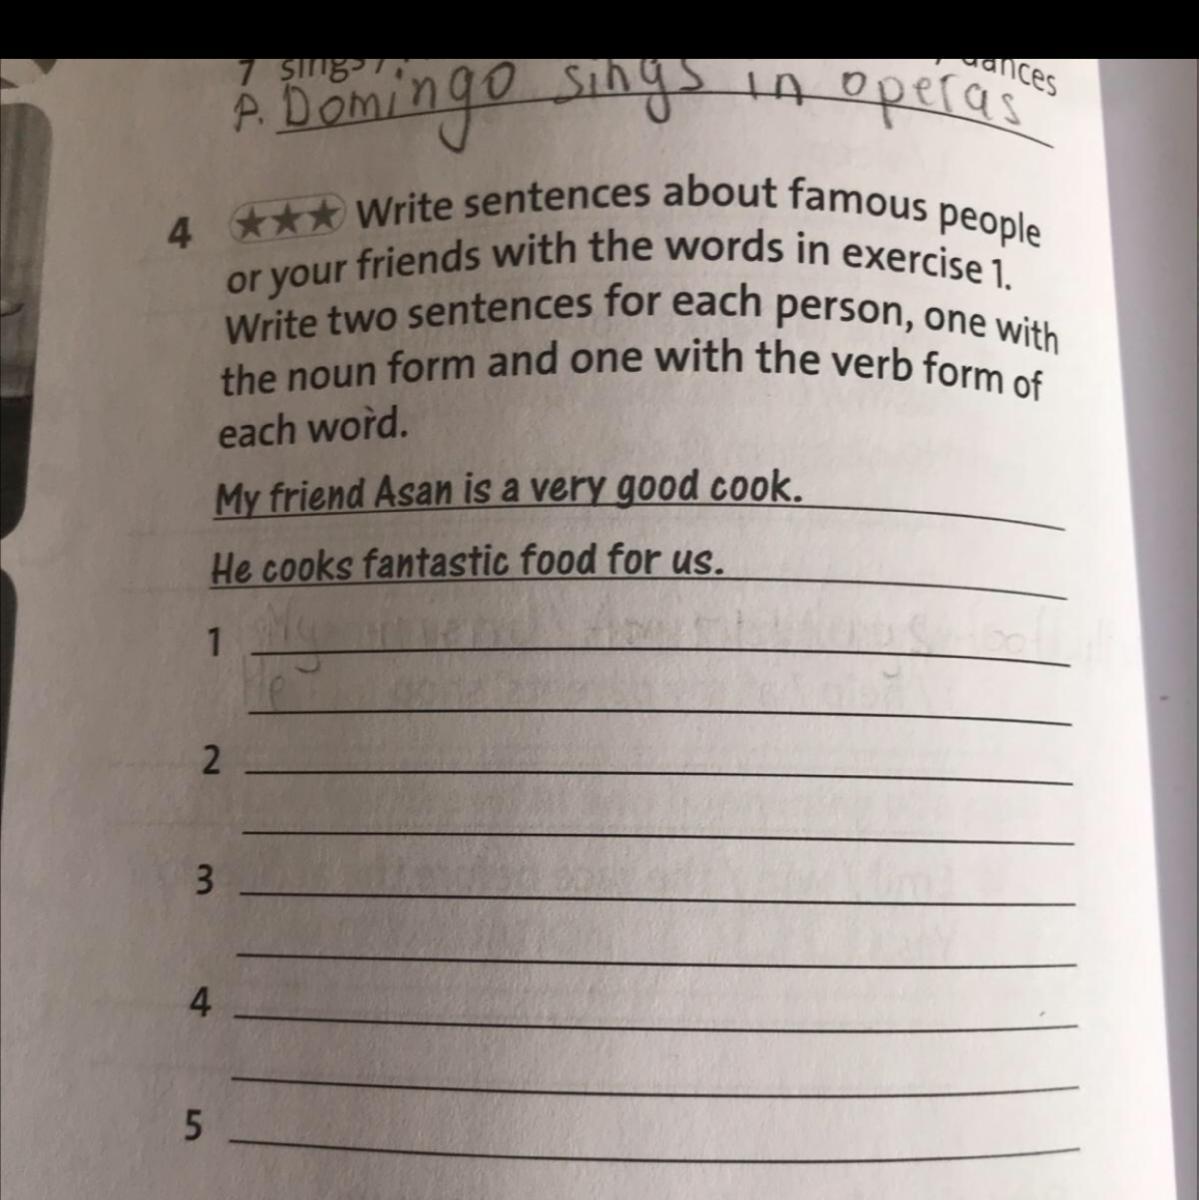 7 sings / dances
P. Domingo sings in operas
4 ★★★ Write sentences about famous people
or your friends with the words in exercise 1.
Write two sentences for each person, one with
the noun form and one with the verb form of
each word.
My friend Asan is a very good cook.
He cooks fantastic food for us.
1 My
He
2
3
4
5